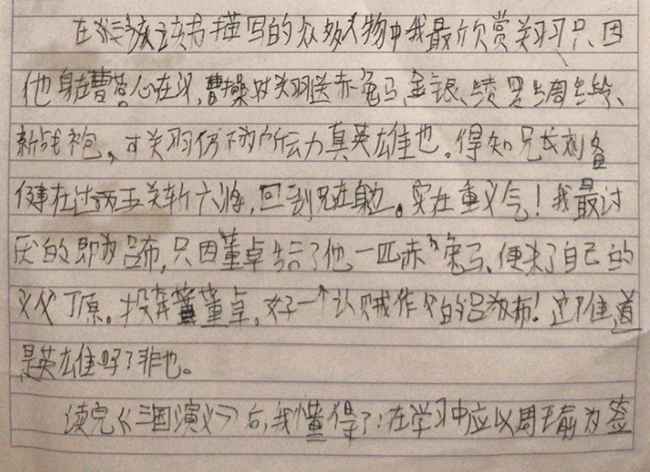 在这该书描写的众多人物中我最欣赏关羽只因
他身在曹营心在汉,曹操对关羽送赤兔马、金银、绫罗绸缎、
新战袍,可关羽仍不为所动力真英雄也。得知兄长刘备
健在过五关斩六将,回到兄在身边。实在重义气!我最讨
厌的即为吕布,只因董卓给了他一匹赤兔马、便杀了自己的
义父丁原。投奔董卓,好一个认贼作父的吕布!这难道
是英雄吗?非也。
读完《三国演义》后,我懂得了:在学习中应以周瑜前为鉴